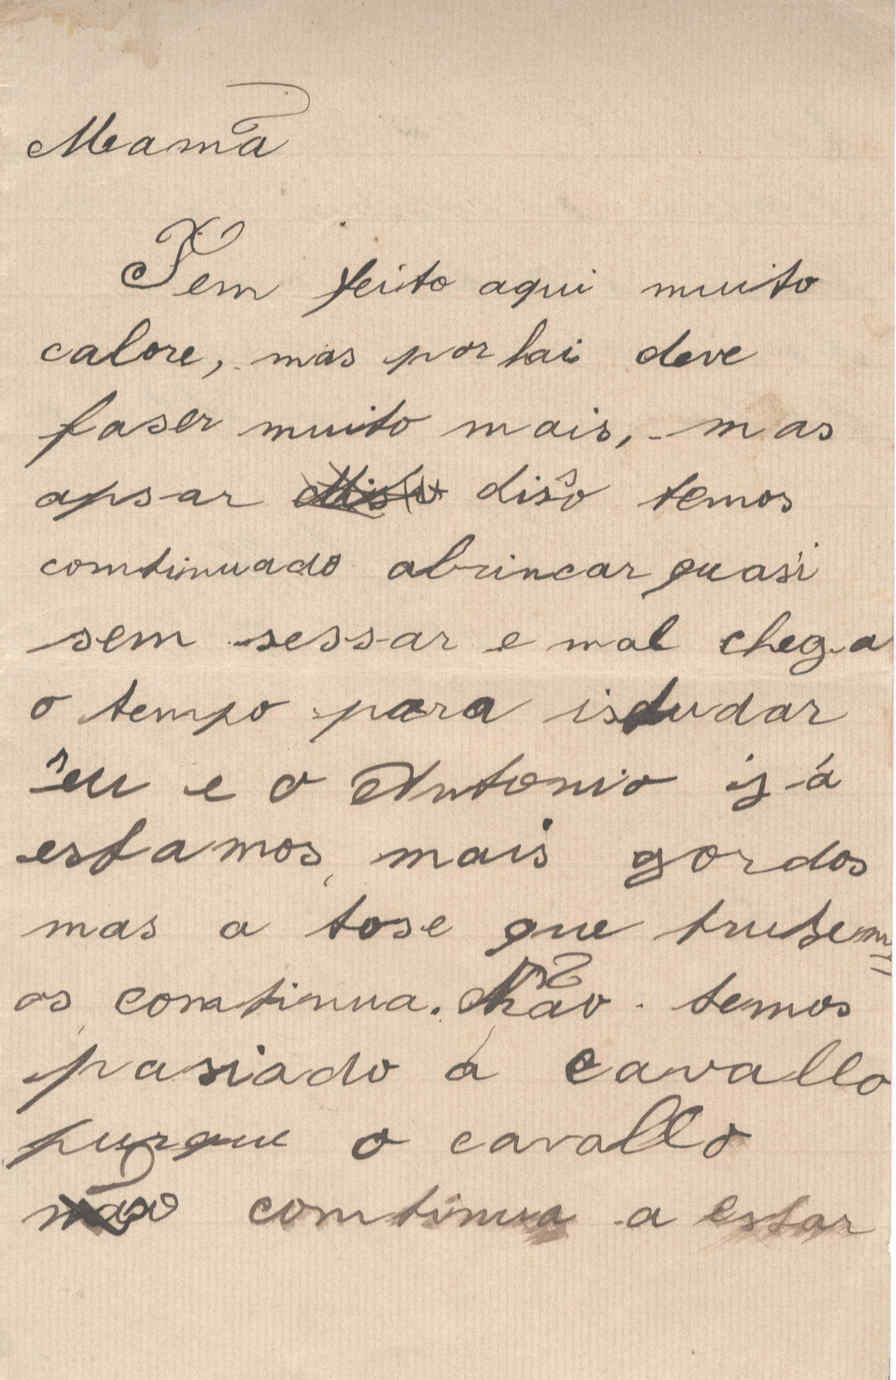 Mamã
Tem feito aqui muito
calore, mas por lai deve
faser muito mais, mas
apsar diso temos
comtinuado abrincar quasi
sem sessar e mal chega
o tempo para isdudar
eu e o Antonio ijá
estamos mais gordos
mas a tose que trusem
os comtinua. Não temos
pasiado á cavallo
purque o cavallo
não comtinua a estar